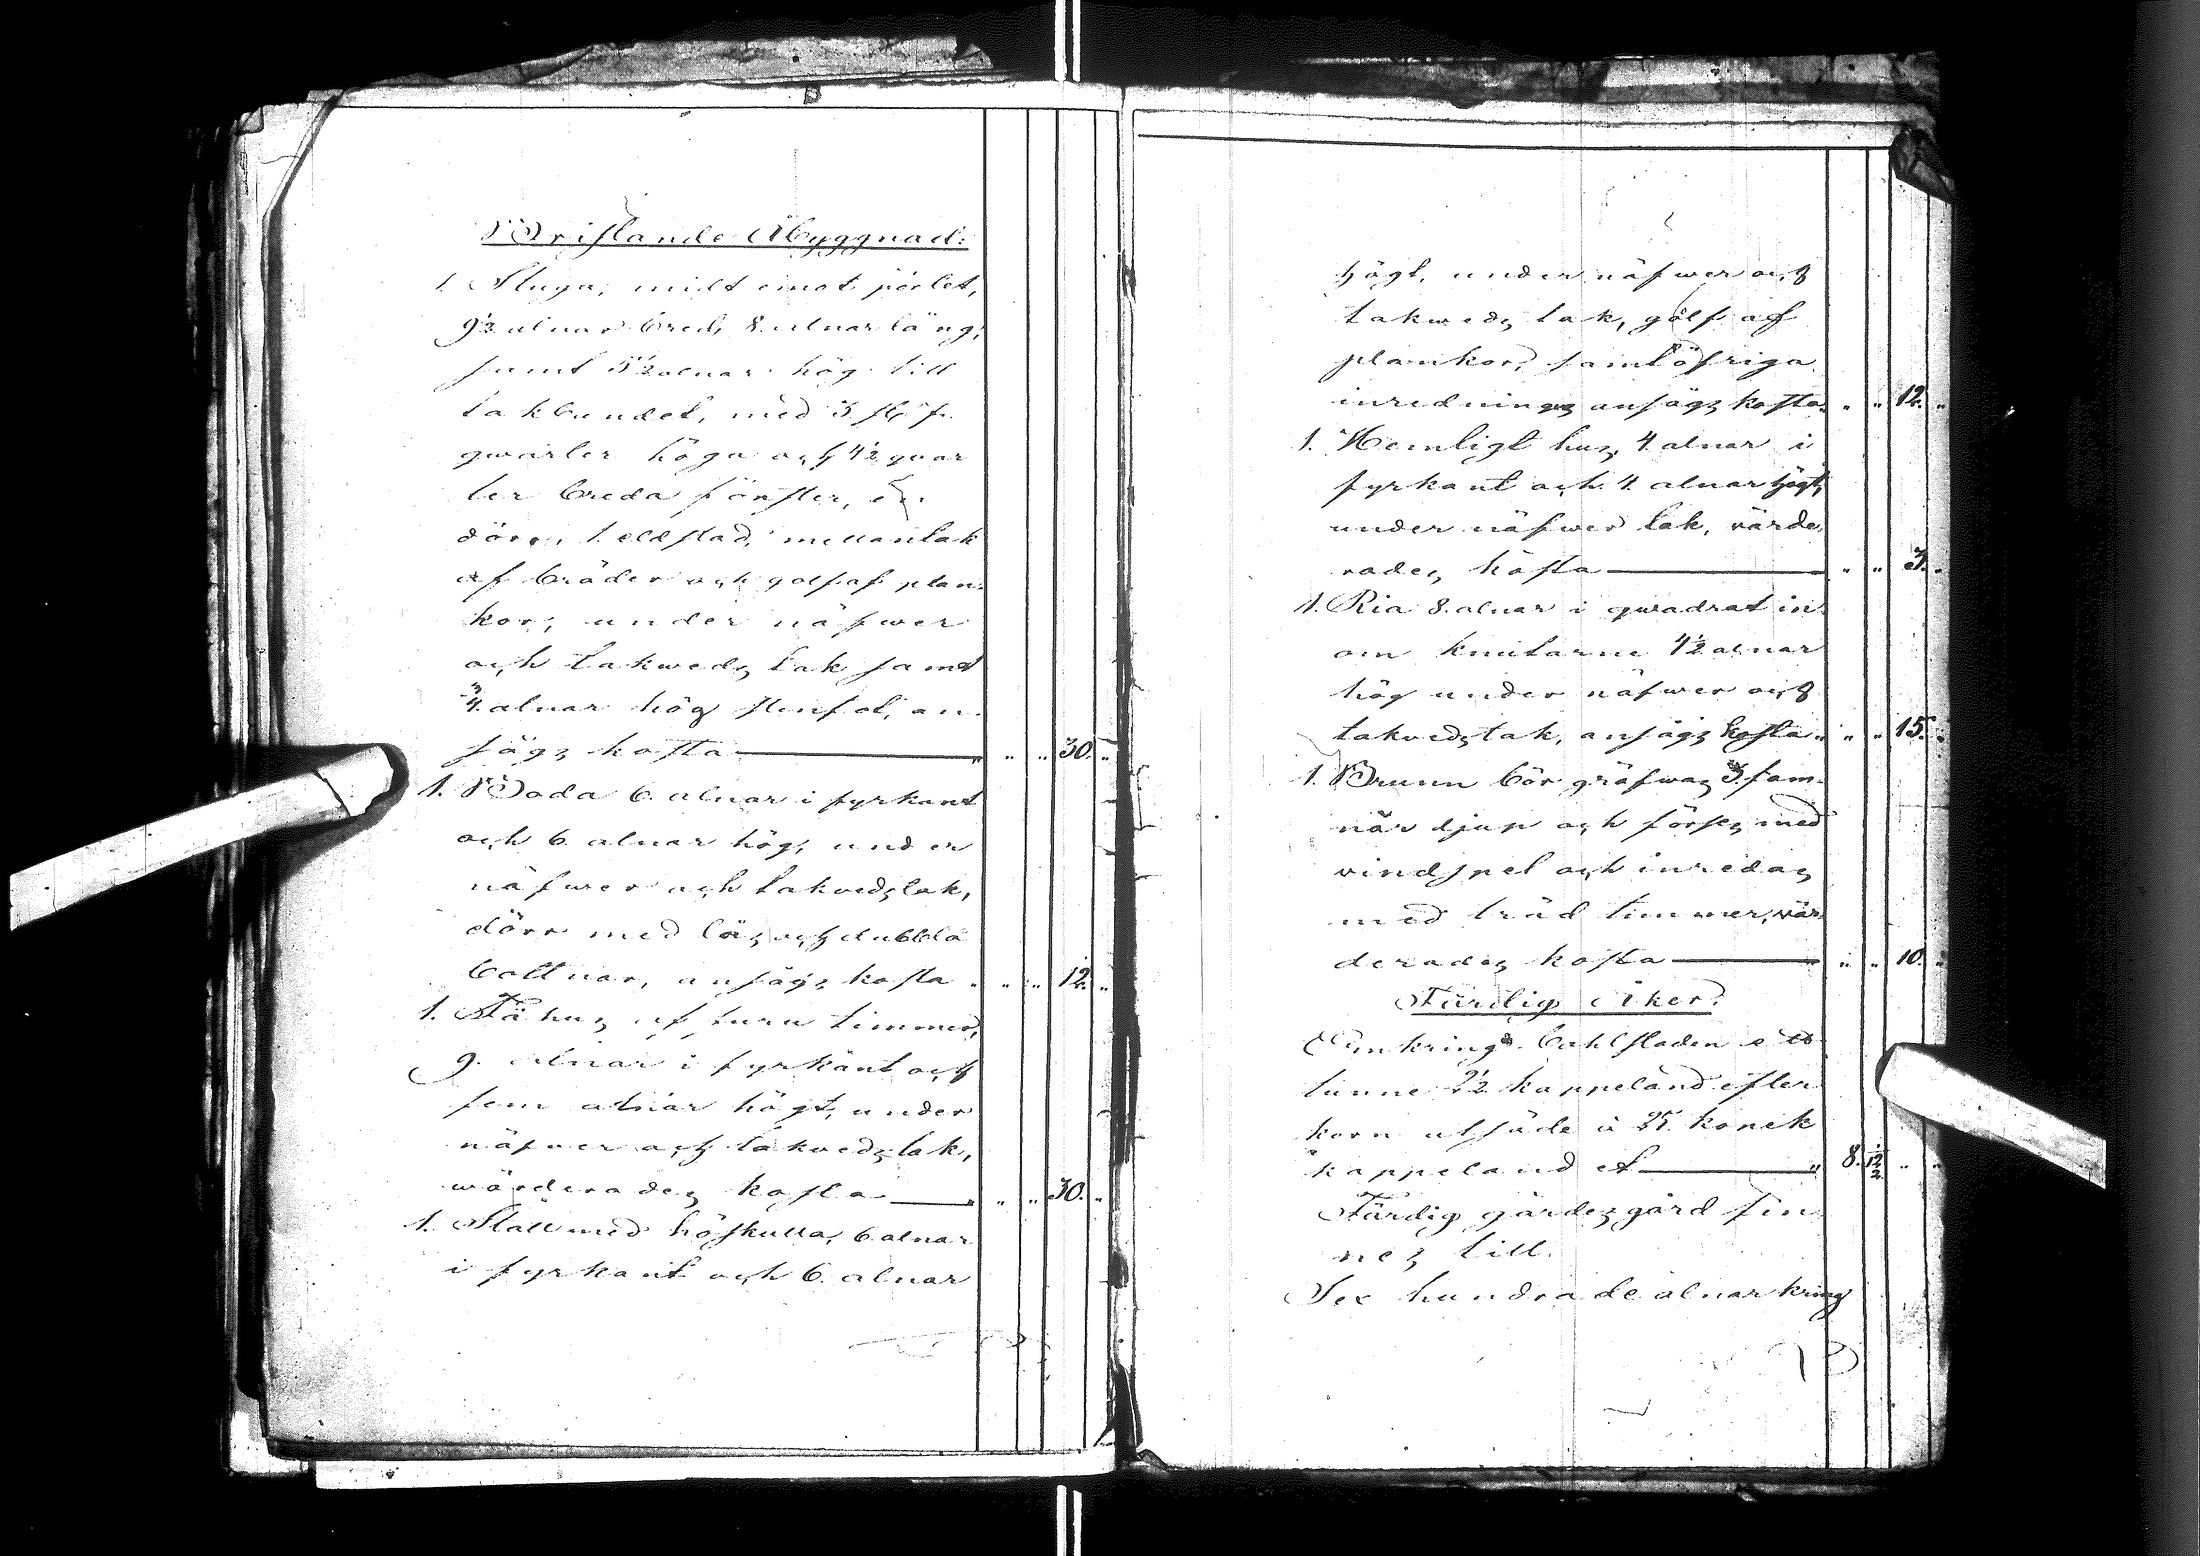 Bristande Åbyggnad:
1. Stuga, midt emot pörtet,
9½ alnar bred, 8. alnar lång,
samt 5½ alnar hög till
takbandet, med 3. st: f.
qwarter höga och 4½ qvar
ter breda fönster, en
dörr, 1. eldstad, mellantak
af bräder och golf af plan-
kor, under näfwer
och takweds tak samt
¾ alnar hög stenfot, an-
sågs kosta " " " 30. "
1. Boda 6. alnar i fyrkant
och 6. alnar hög, under
näfwer och takvedstak,
dörr med lås och dubbla
bottnar, ansågs kosta " " " 12. "
1. Fähus af furu timmer,
9. alnar i fyrkant och
fem alnar högt, under
näfwer och takvedstak,
wärderades kosta " " " 30. "
1. Stall med höskulla, 6 alnar
i fyrkant och 6. alnar
högt, under näfwer och
takweds tak, golf af
plankor, samt öfriga
inrednings ansågs kosta " " 12. "
1. Hemligt hus, 4 alnar i
fyrkant och 4. alnar högt,
under näfwer tak, värde
rades kosta " " 3. "
1. Ria 8. alnar i qwadrat in-
om knutarne 4½ alnar
hög under näfwer och
takvedstak, ansågs kosta " " " 15. "
1. Brunn bör gräfwas 3. fam-
nar djup och förses med
vindspel och inredas
med träd timmer, vär
derades kosta " " 10. "
Färdig Åker.
Omkring bohlstaden ett
tunne 2½ kappeland efter
korn utsäde à 25. kopek
kappeland et " 8. 12½ " "
Färdig gärdesgård fin-
nes till.
Sex hundrade alnar kring